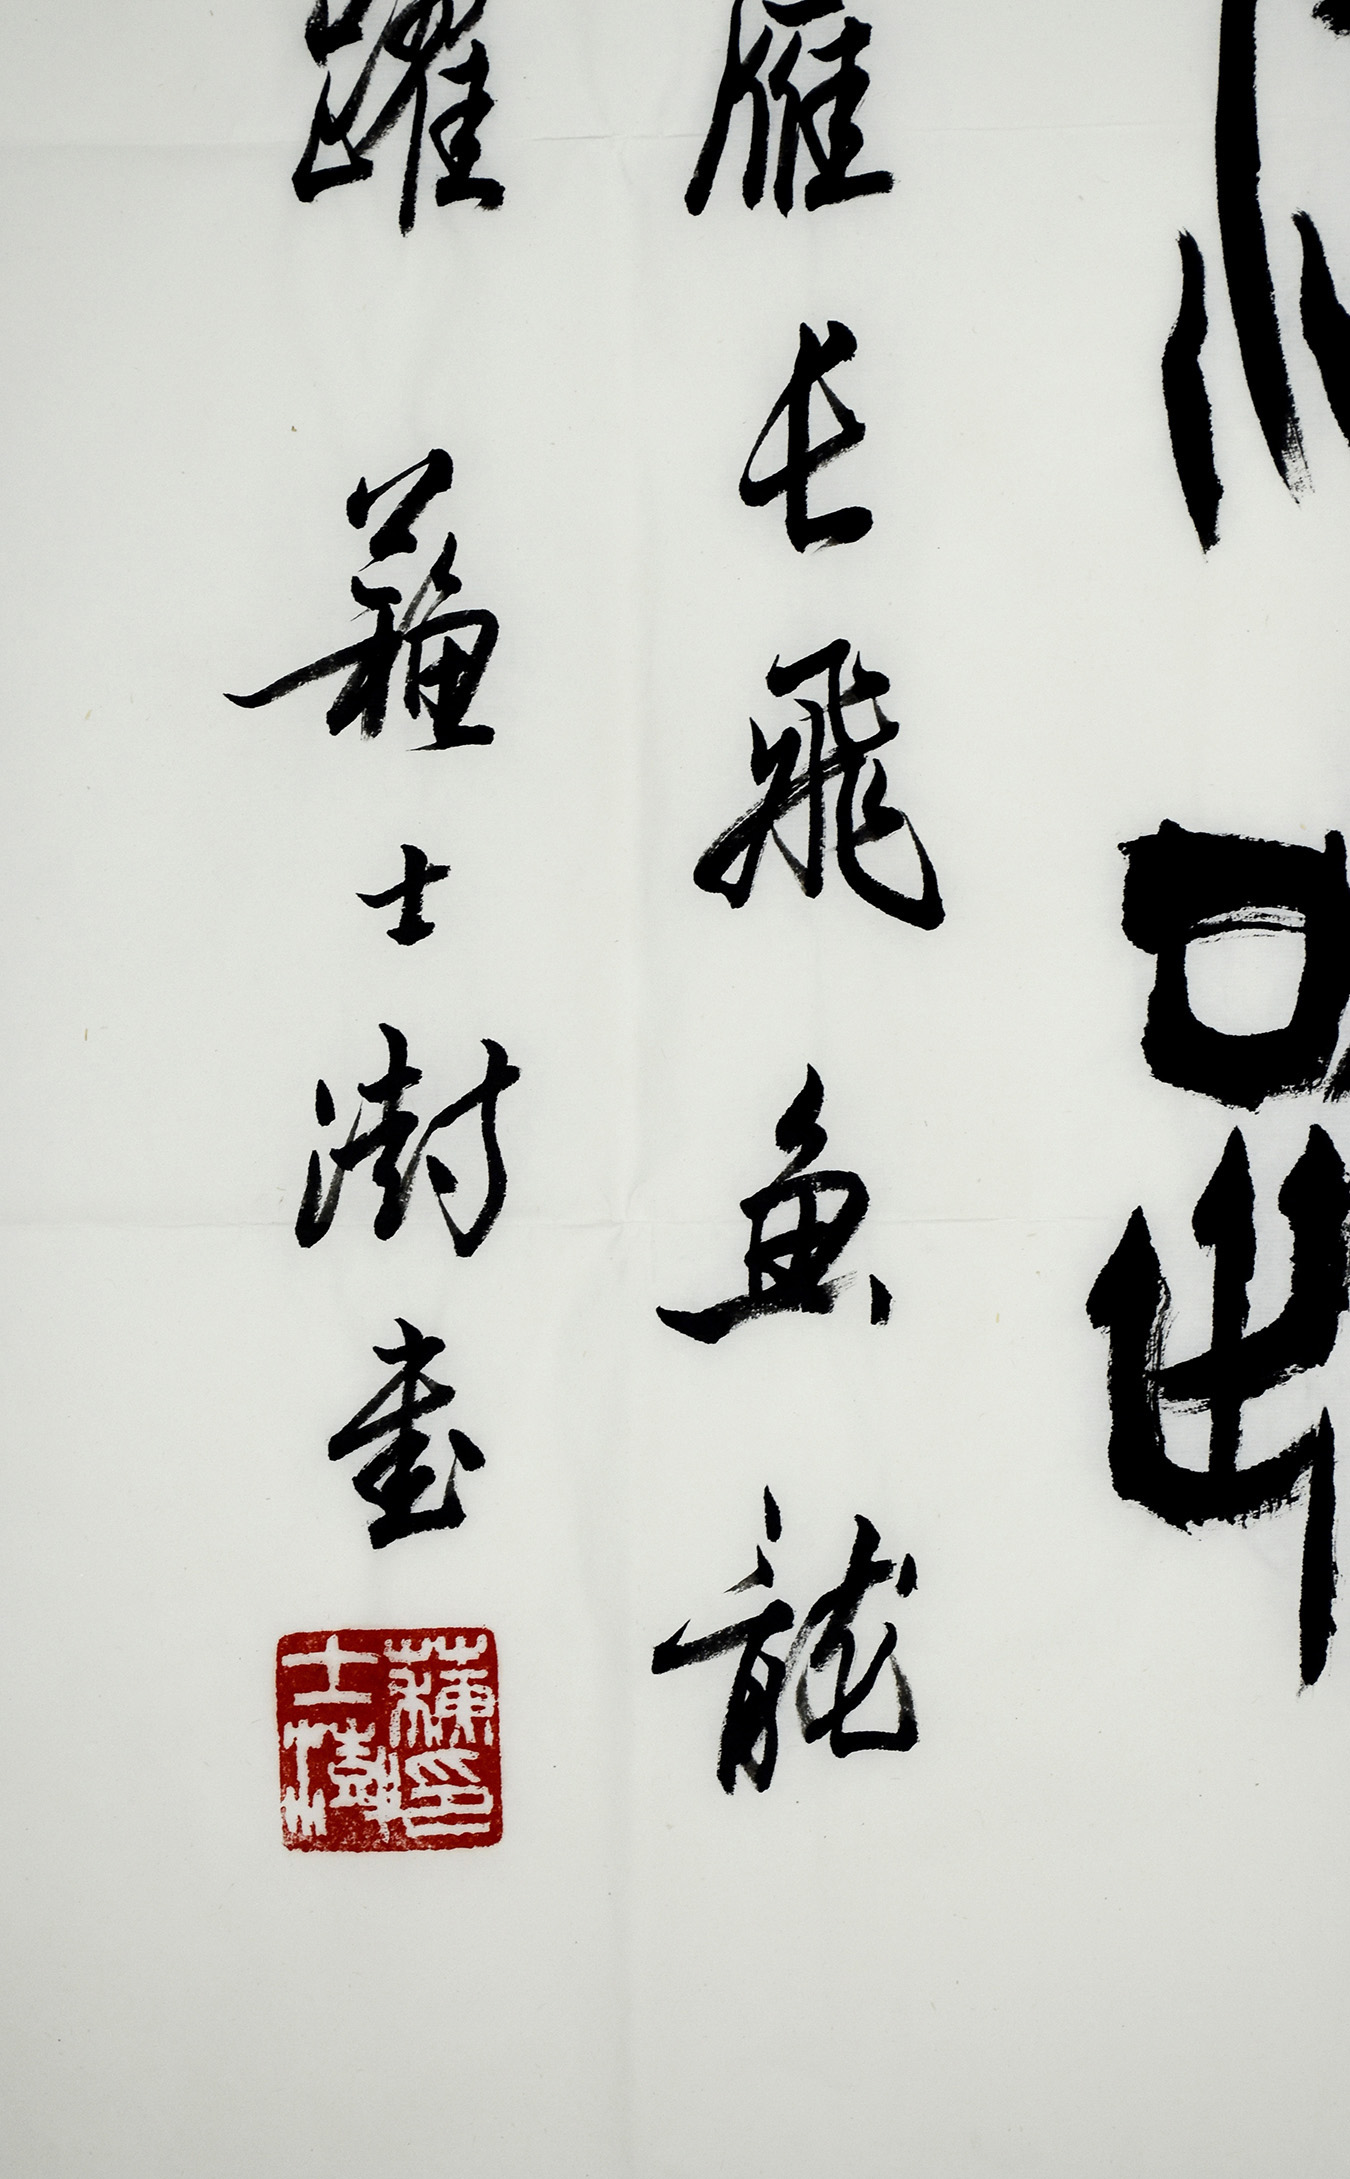 雁長飛魚龍
躍 蘇士澍書
蘇士澍印